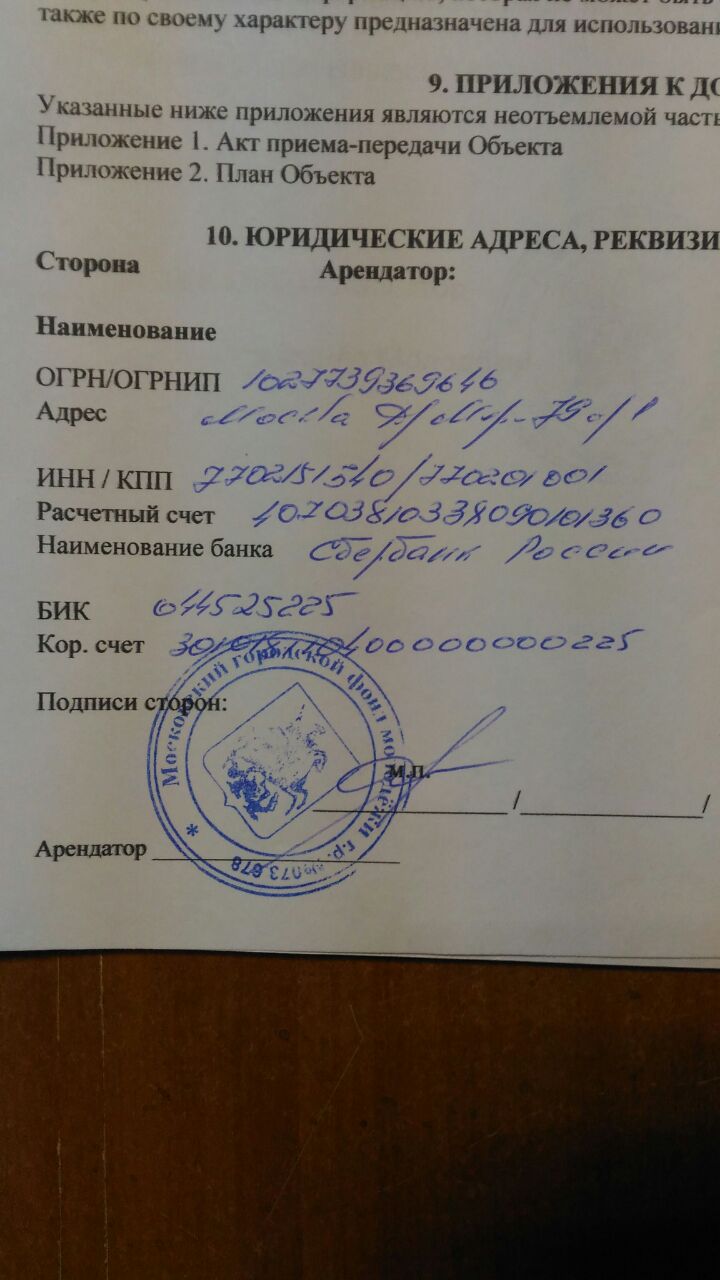 также по своему характеру предназначена для использовани
9. ПРИЛОЖЕНИЯ К ДО
Указанные ниже приложения являются неотъемлемой часть
Приложение 1. Акт приема-передачи Объекта
Приложение 2. План Объекта
10. ЮРИДИЧЕСКИЕ АДРЕСА, РЕКВИЗИ
Сторона Арендатор:
Наименование
ОГРН/ОГРНИП 1027739369646
Адрес Москва
ИНН / КПП 7702151540/770201001
Расчетный счет 40703810338090101360
Наименование банка Сбербанк России
БИК 044525225
Кор. счет
Московский городской фонд молодёжи г.р.
Подписи сторон:
М.П.
/ /
Арендатор